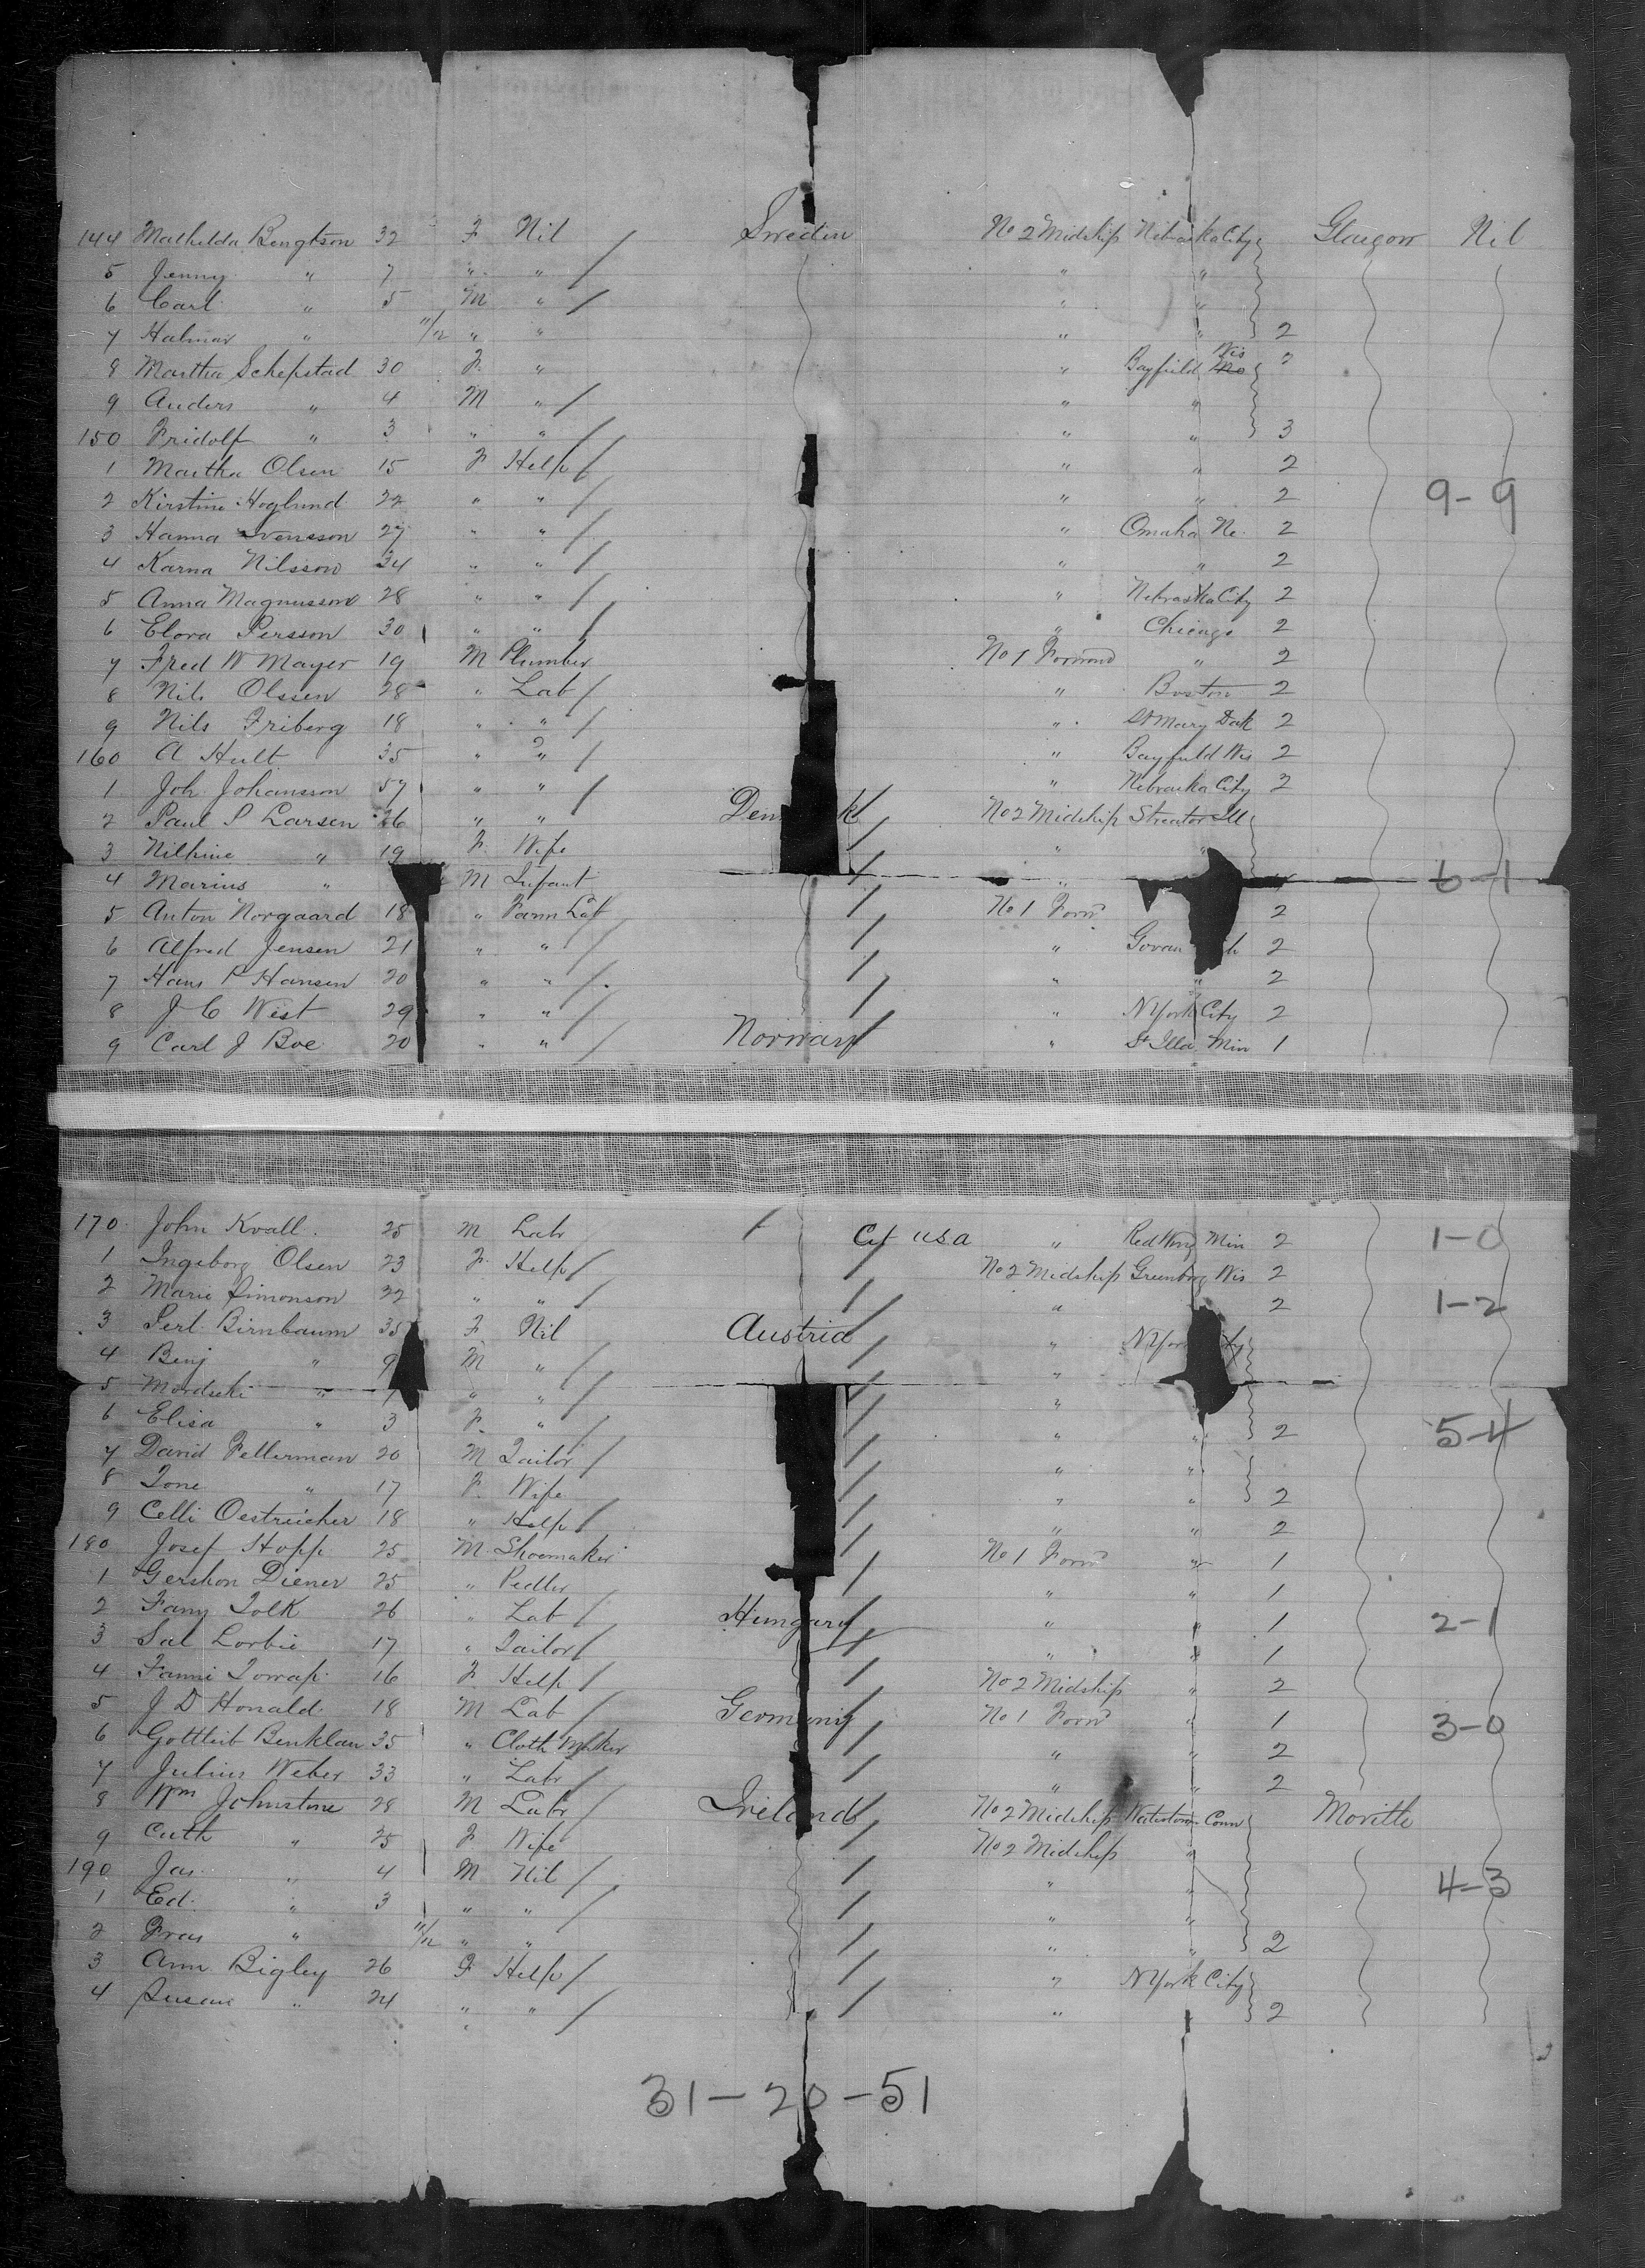 144 Mathelda Bengtson 32 F Nil Sweden No 2 Midship Nebraska City Glasgow Nil
5 Jenny " 7 " " " "
6 Carl " 5 M " " "
7 Halmar " 11/12 " " " " 2
8 Martha Schepstad 30 F " " Bayfield Wis
9 Anders " 4 M " " "
150 Fridolf " 3 " " " " 3
1 Martha Olsen 15 F Help " " 2
2 Kirstine Hoglund 22 " " " " 2 9-9
3 Hanna Svensson 27 " " " Omaha Ne. 2
4 Karna Nilsson 34 " " " " 2
5 Anna Magnusson 28 " " " Nebraska City 2
6 Elova Persson 30 " " " Chicago 2
7 Fred W Mayer 19 M Plumber No 1 Forward " 2
8 Nils Olssen 28 " Lab " Boston 2
9 Nils Friberg 18 " " " St Mary Dak 2
160 A Hult 35 " " " Bayfield Wis 2
1 Joh Johansson 57 " " " Nebraska City 2
2 Paul P Larsen 26 " " Den k No 2 Midship Streator Ill
3 Nilhine " 19 F Wife " "
4 Marius " M Infant " 6-1
5 Anton Norgaard 18 " Farm Lab No 1 Forwd 2
6 Alfred Jensen 21 " " " Govan h 2
7 Hans P Hansen 20 " " " " 2
8 J C West 29 " " " N York City 2
9 Carl J Boe 20 " " Norway " St Illa Min 1
170 John Kvall 25 M Labr Cit USA " Red Wing Min 2 1-0
1 Ingeborg Olsen 23 F Help No 2 Midship Greenborg Wis 2
2 Marie Simonson 32 " " " 2 1-2
3 Perl Birnbaum 35 F Nil Austria " N York City
4 Benj " 9 M " "
5 Mordschi " 7 " " "
6 Elisa " 3 F " " " 2 5-4
7 David Fellerman 20 M Tailor " "
8 Tone " 17 F Wife " " 2
9 Celli Oestreicher 18 " Help " " 2
180 Josef Stopp 25 M Shoemaker No 1 Forwd " 1
1 Gershon Diener 25 " Pedler " " 1
2 Fany Tolk 26 " Lab Hungary " " 1 2-1
3 Sal Lorbie 17 " Tailor " " 1
4 Fanni Torrap 16 F Help No 2 Midship " 2
5 J D Honald 18 M Lab Germany No 1 Forwd " 1 3-0
6 Gottleib Benklau 35 " Cloth Maker " " 2
7 Julius Weber 33 " Labr " " 2
8 Wm Johnstone 28 M Labr Ireland No 2 Midship Watertown Conn Moville
9 Cath " 25 F Wife No 2 Midship "
190 Jas " 4 M Nil " " 4-3
1 Ed. " 3 " " " "
2 Fras " 11/12 " " " " 2
3 Ann Bigley 26 F Help " N York City
4 Susan " 24 " " " " 2
31-20-51